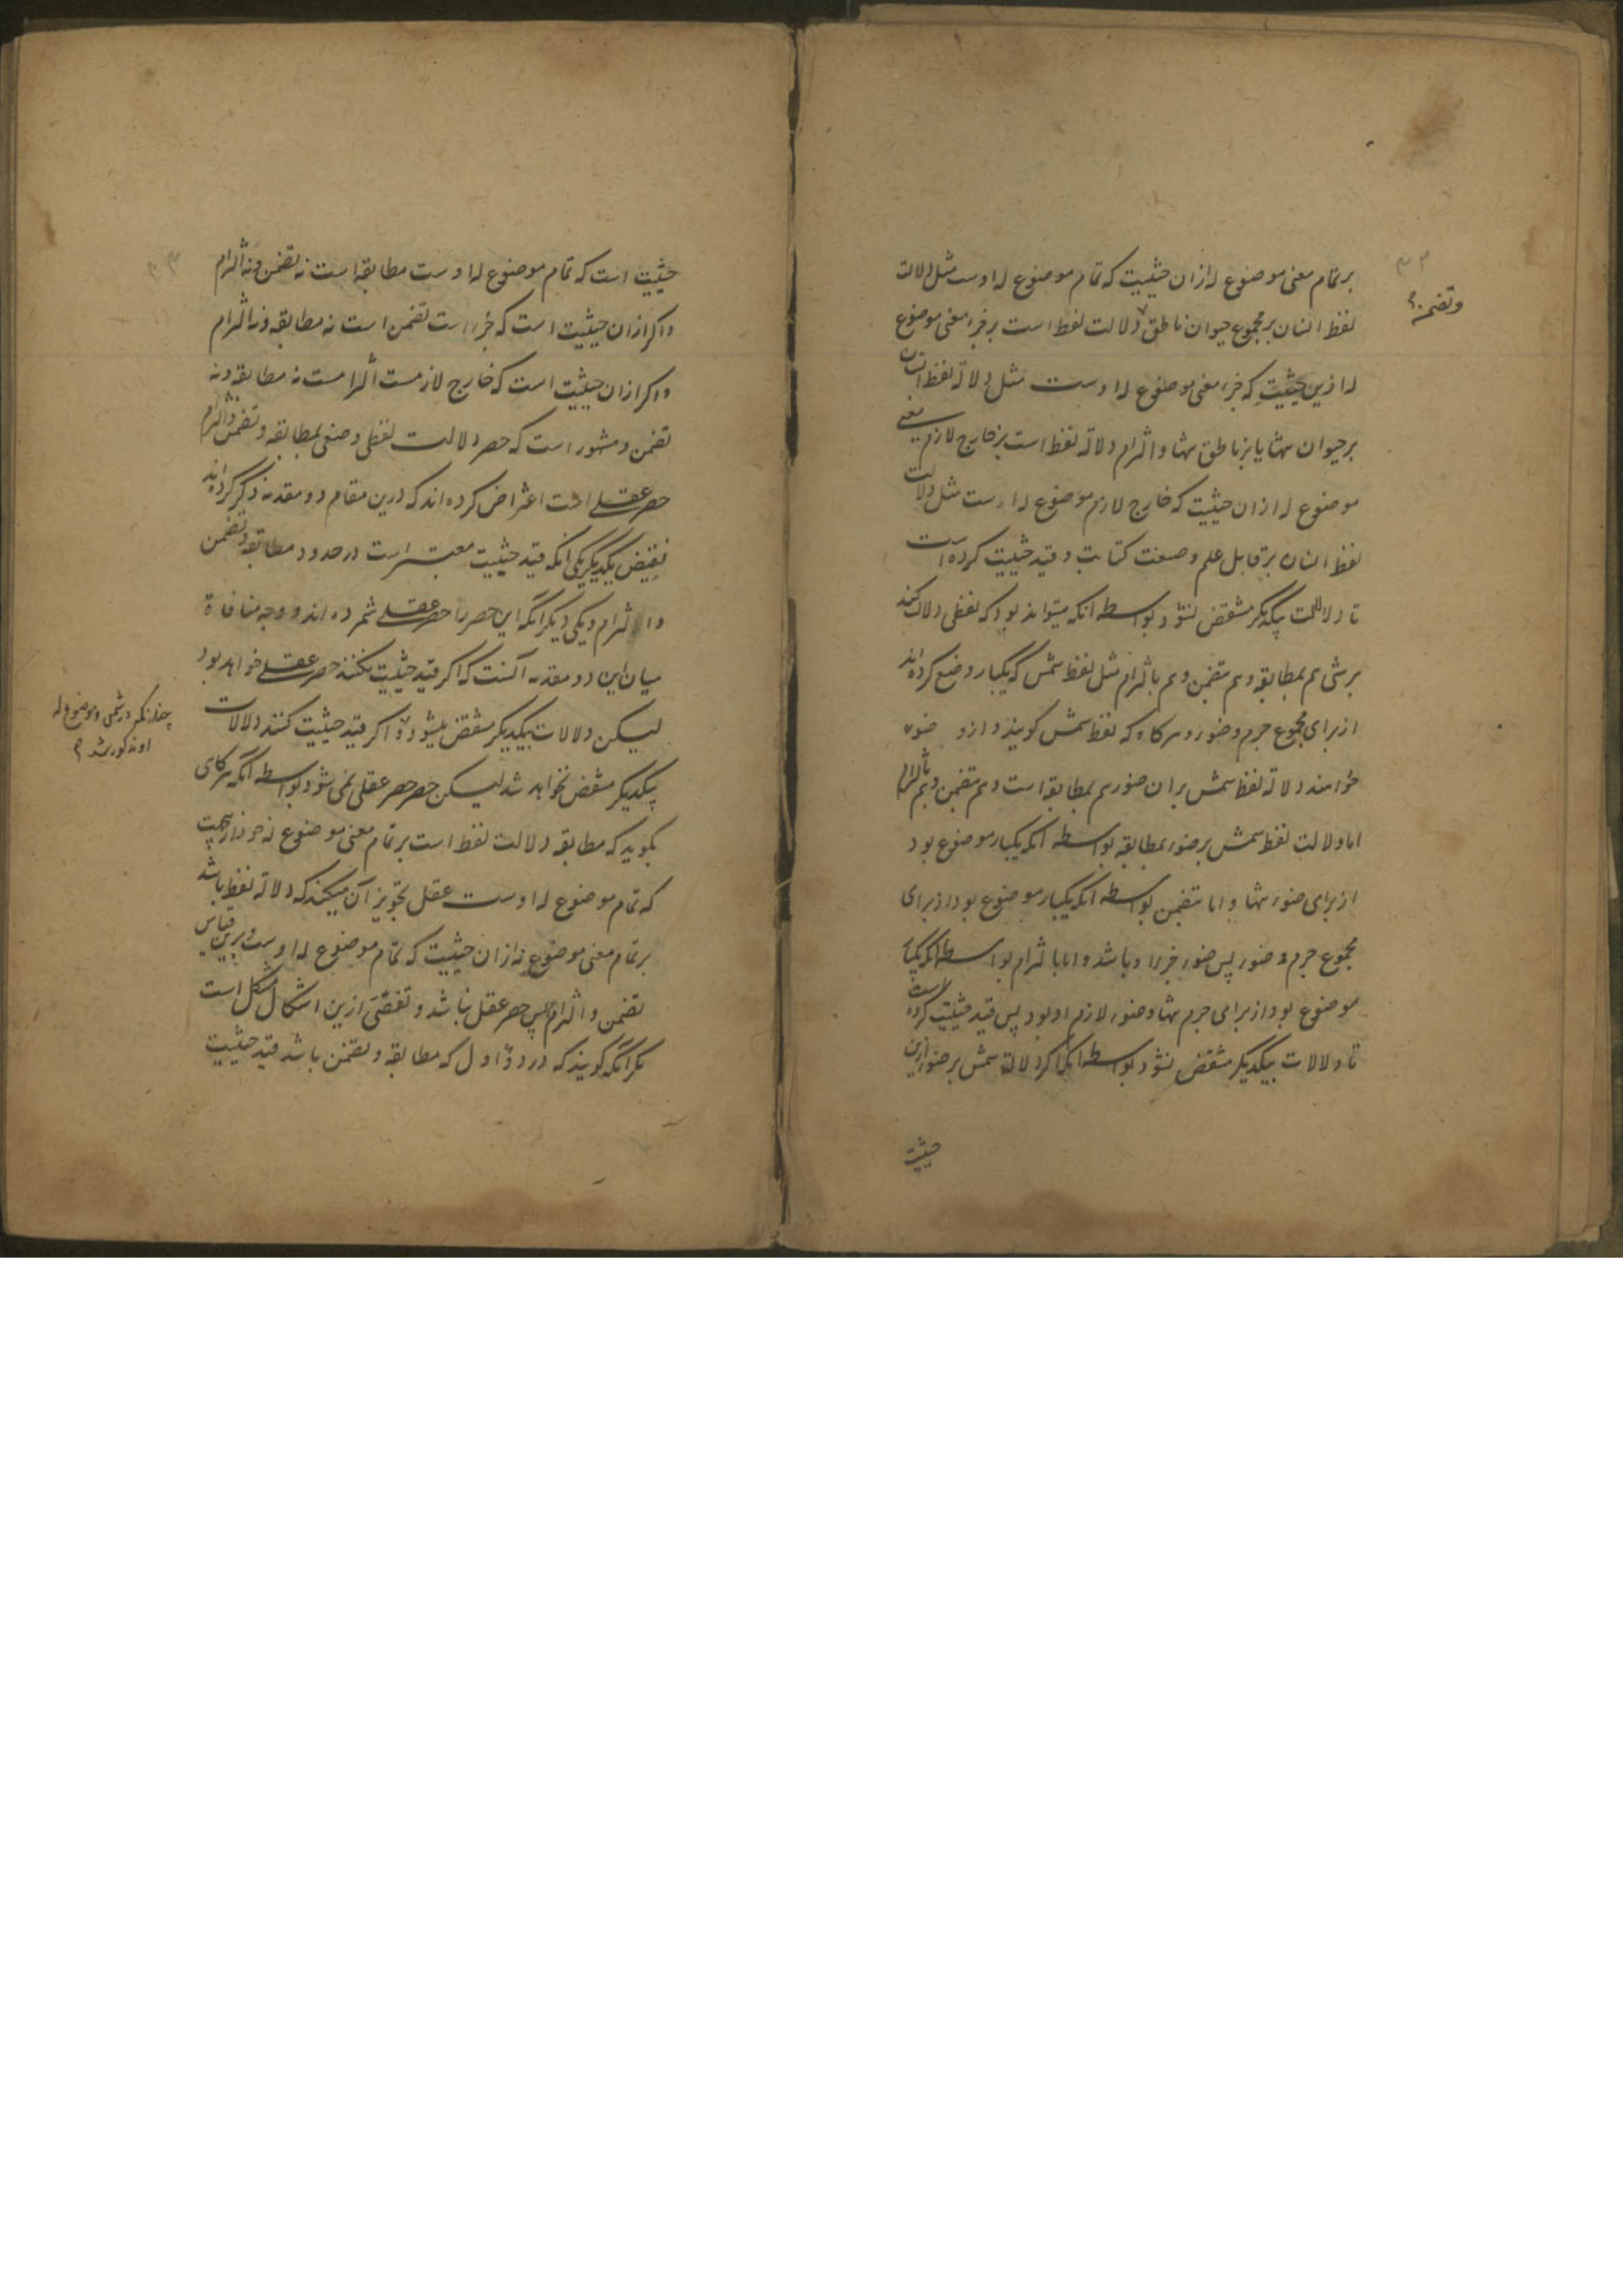 بر تمام معنی موضوع له ازان حیثیت که تمام موضوع له اوست مثل دلالت
لفظ انسان بر مجموع حیوان ناطق دلالت لفظ است بر جزء معنی موضوع
وتضمن
له ازین حیثیت که جزء معنی موضوع له اوست مثل دلالة لفظ انسان
بر حیوان تنها یا بر ناطق تنها و التزام دلالة لفظ است بر خارج لازم معنی
موضوع له ازان حیثیت که خارج لازم موضوع له اوست مثل دلالت
لفظ انسان بر قابل علم و صنعت کتابت و قید حیثیت کرده است
تا دلالت بیکدیگر منتقض نشود بواسطه انکه میتواند بود که لفظی دلالت کند
بر شی هم بمطابقه و هم بتضمن و هم بالتزام مثل لفظ شمس که یکبار وضع کرده‌اند
از برای مجموع جرم و ضوء و هرگاه که لفظ شمس گویند و ازو ضوء
خواهند دلالة لفظ شمس بران ضوء هم بمطابقه است و هم بتضمن و هم بالتزام
اما دلالت لفظ شمس بر ضوء بمطابقه بواسطه انکه یکبار موضوع بود
از برای ضوء تنها و اما بتضمن بواسطه انکه یکبار موضوع بود از برای
مجموع جرم و ضوء پس ضوء جزء او باشد و اما بالتزام بواسطه انکه یکبار
موضوع بود از برای جرم تنها و ضوء لازم او بود پس قید حیثیت کرده است
تا دلالات بیکدیگر منتقض نشود بواسطه انکه اگر دلالة شمس بر ضوء ازین
حیثیت
حیثیت است که تمام موضوع له اوست مطابقه است نه تضمن و نه التزام
و اکر ازان حیثیت است که جزء است تضمن است نه مطابقه و نه التزام
و اکر ازان حیثیت است که خارج لازمست التزامست نه مطابقه و نه
تضمن و مشهور است که حصر دلالت لفظی وضعی بمطابقه و تضمن و التزام
حصر عقلی است اعتراض کرده اند که درین مقام دو مقدمه ذکر کرده‌اند
نقیض یکدیگر یکی انکه قید حیثیت معتبر است در حدود مطابقه و تضمن
و التزام و یکی دیگر انکه این حصر را حصر عقلی شمرده اند و وجه منافاة
میان این دو مقدمه آنست که اکر قید حیثیت نکنند حصر عقلی خواهد بود
لیکن دلالات بیکدیگر منتقض میشود و اکر قید حیثیت کنند دلالات
چنانکه در شمس و موضوع له
او مذکور شد
بیکدیگر منتقض نخواهد شد لیکن حصر حصر عقلی نمی شود بواسطه انکه هرگاه
بگوید که مطابقه دلالت لفظ است بر تمام معنی موضوع له خود ازان حیثیت
که تمام موضوع له اوست عقل تجویز آن میکند که دلالة لفظ باشد
بر تمام معنی موضوع نه ازان حیثیت که تمام موضوع له اوست و برین قیاس
تضمن و التزام پس حصر عقلی نباشد و تفصی ازین اشکال مشکل است
مکر انکه گویند که در دو اول که مطابقه و تضمن باشد قید حیثیت